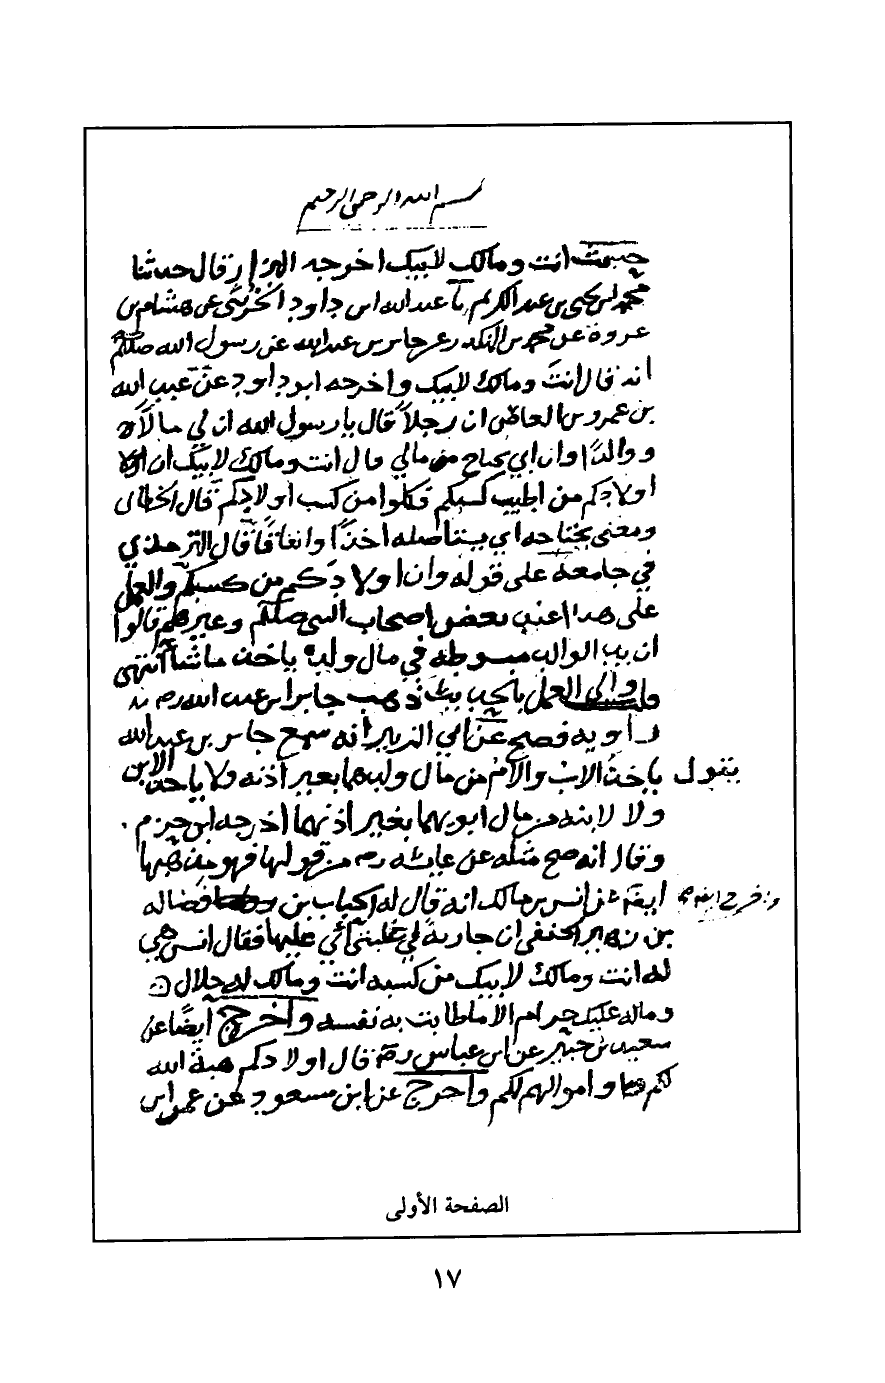 بسم الله الرحمن الرحيم
حديث انت ومالك لابيك اخرجه البزار قال حدثنا
محمد بن يحيى بن عبد الكريم نا عبد الله ابن داود الخريبى عن هشام بن
عروة عن محمد بن المنكدر عن جابر بن عبد الله عن رسول الله صلعم
انه قال انت ومالك لابيك واخرجه ابو داود عن عبد الله
بن عمرو بن العاص ان رجلاً قال يا رسول الله ان لي مالاً
ووالدًا وان ابي يجتاح من مالي قال انت ومالك لابيك ان
اولادكم من اطيب كسبكم فكلوا من كسب اولادكم قال الخطابى
ومعنى يجتاحه اي يستاصله اخذًا وانفاقًا قال الترمذي
في جامعه على قوله وان اولادكم من كسبكم والعمل
على هدا عند بعض اصحاب النبى صلعم وغيرهم قالوا
ان يد الوالد مبسوطه في مال ولده ياخذ ما شاء انتهى
والى العمل بالحديث ذهب جابر ابن عبد الله رضه
راويه فصح عن ابي الزبير انه سمع جابر بن عبد الله
يقول ياخذ الاب والام من مال ولدهما بغير اذنه ولا ياخذ الابن
ولا الابنه من مال ابويهما بغير اذنهما اخرجه ابن حزم
وقال انه صح مثله عن عايشه رضه من قولها فهو مذهبها
واخرج ايضا عن انس بن مالك انه قال له فضاله
بن الحنفى ان جارية لي غلبنى ابي عليها فقال انس هي
له انت ومالك لابيك من كسبه انت وماله لك حلال
وماله عليك حرام الا ما طابت به نفسه واخرج ايضًا عن
سعيد بن جبير عن ابن عباس رضه قال اولادكم هبة الله
لكم واموالهم لكم واخرج عن ابن مسعود عن عمر ابن
الصفحة الأولى
١٧